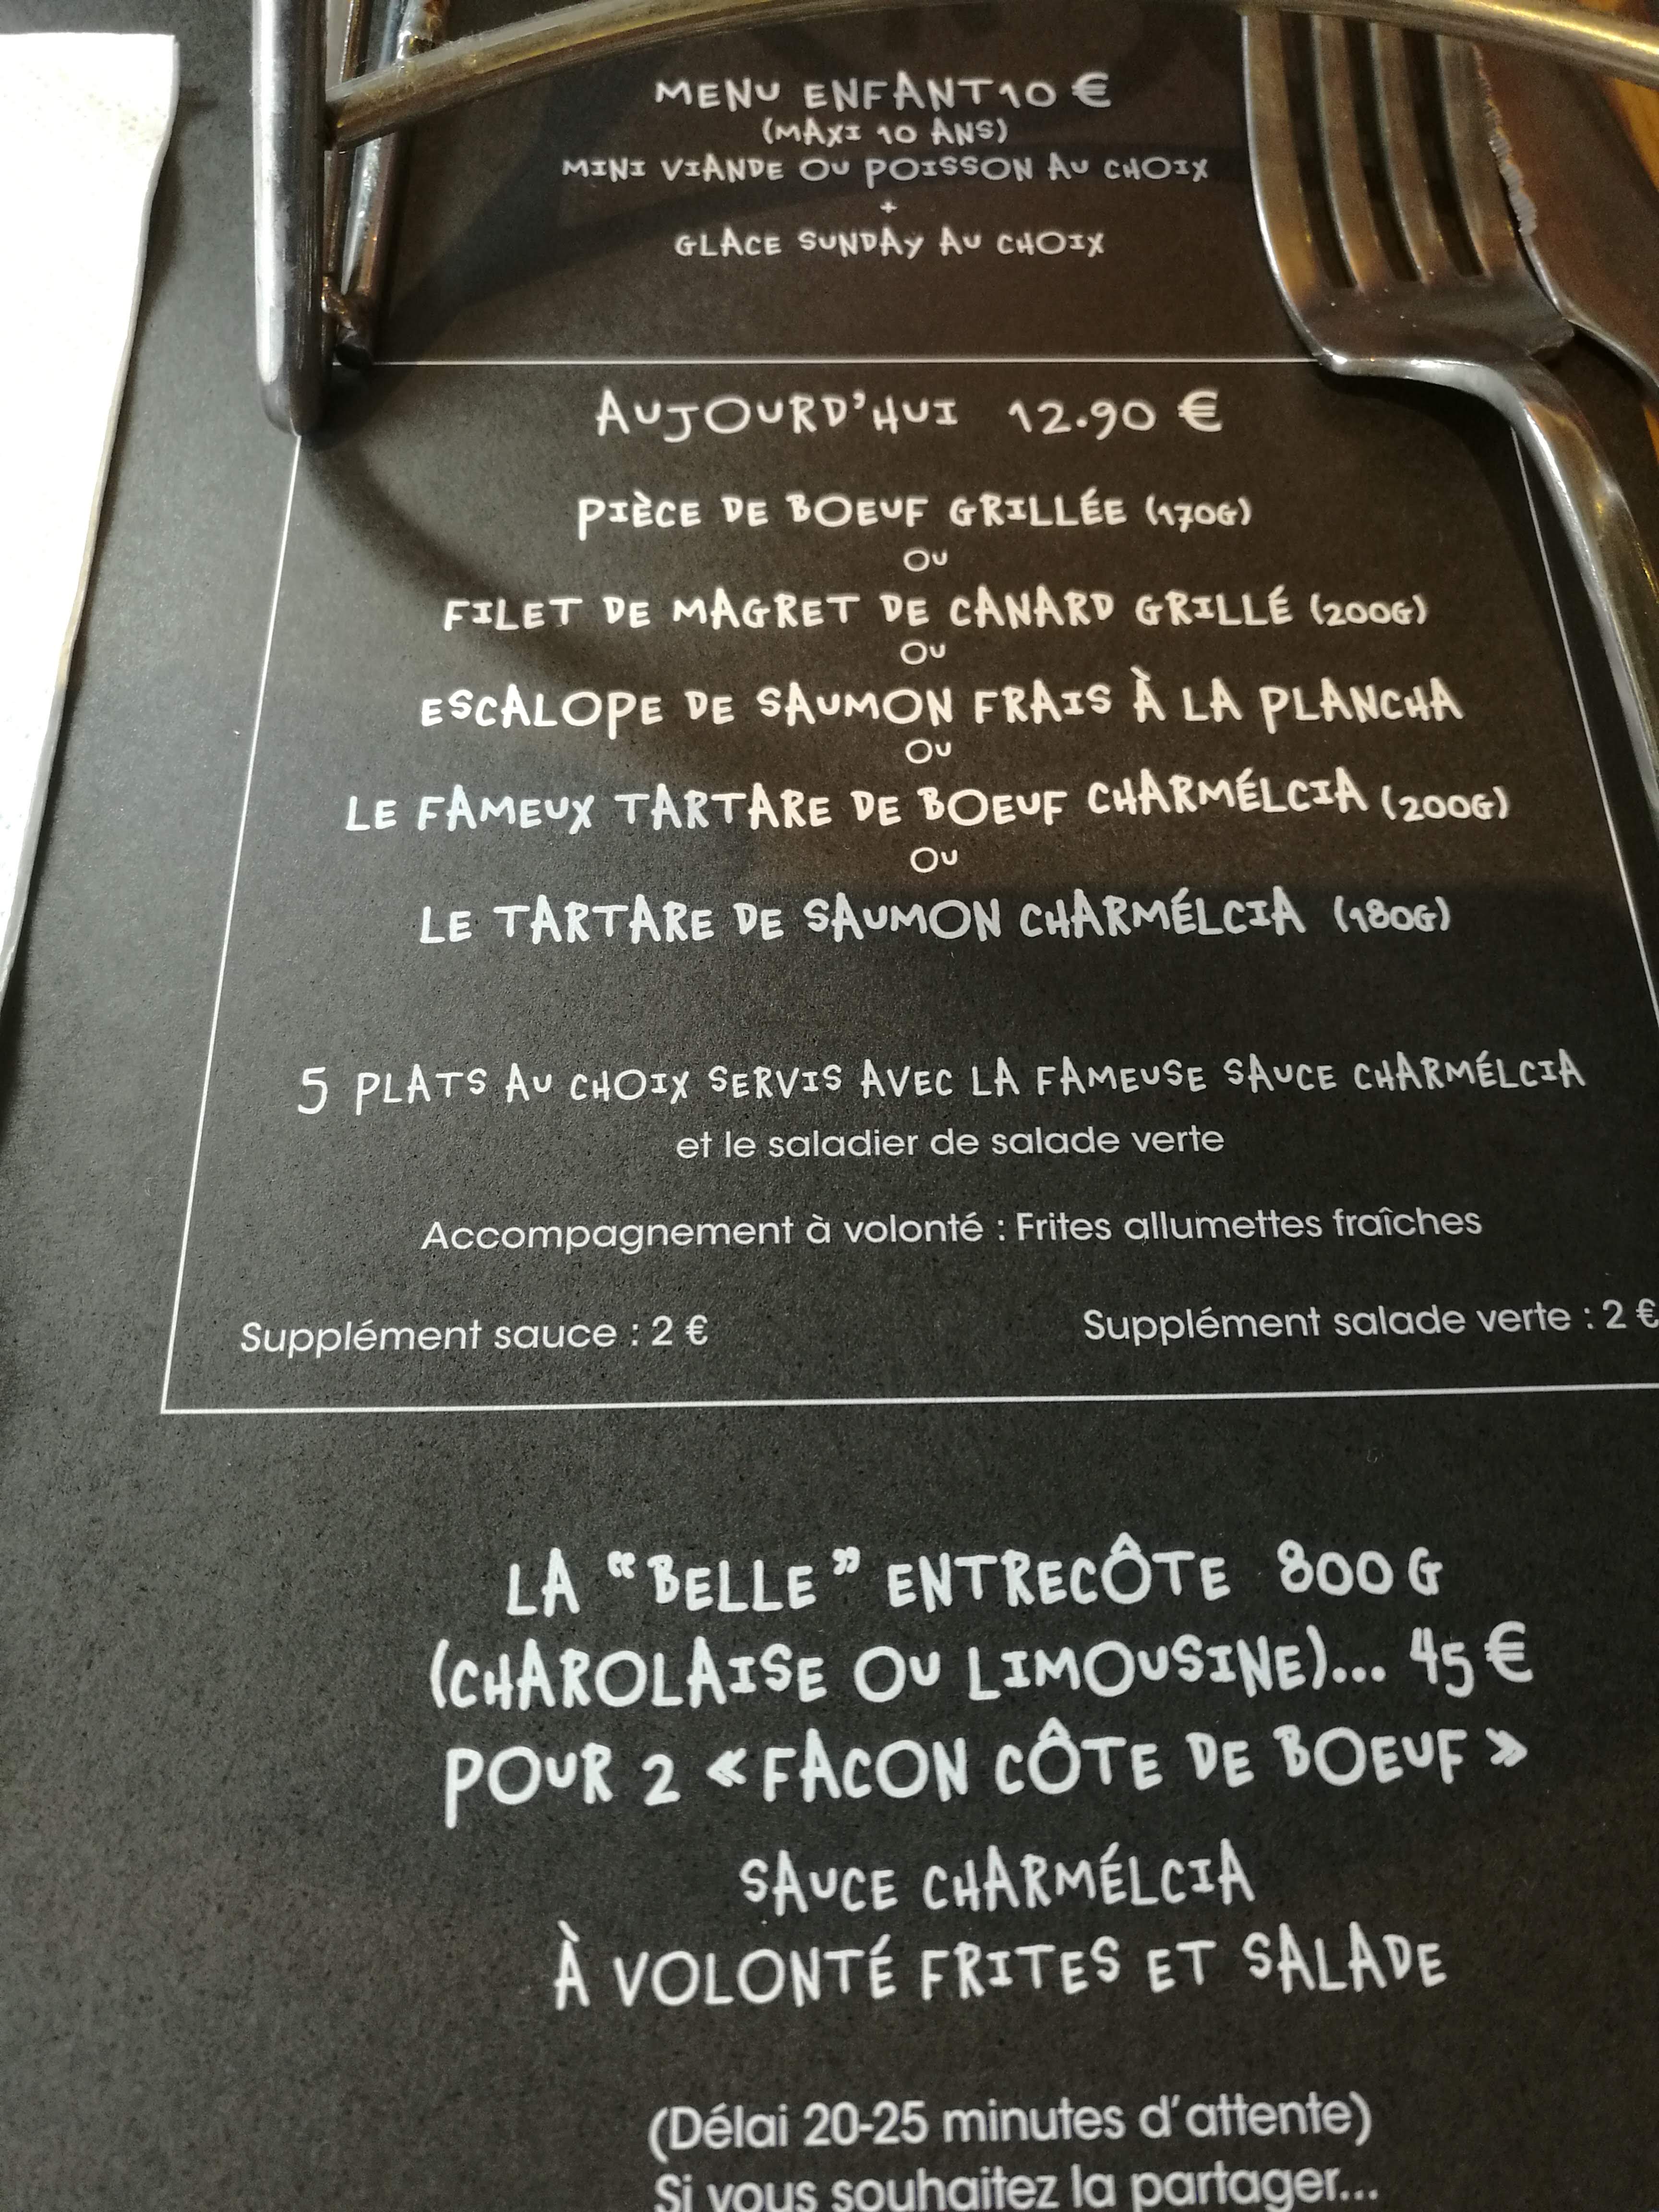 MENU ENFANT 10 €
(MAXI 10 ANS)
MINI VIANDE OU POISSON AU CHOIX
+
GLACE SUNDAY AU CHOIX
AUJOURD'HUI 12.90 €
PIÈCE DE BOEUF GRILLÉE (170G)
OU
FILET DE MAGRET DE CANARD GRILLÉ (200G)
OU
ESCALOPE DE SAUMON FRAIS À LA PLANCHA
OU
LE FAMEUX TARTARE DE BOEUF CHARMÉLCIA (200G)
OU
LE TARTARE DE SAUMON CHARMÉLCIA (180G)
5 PLATS AU CHOIX SERVIS AVEC LA FAMEUSE SAUCE CHARMÉLCIA
et le saladier de salade verte
Accompagnement à volonté : Frites allumettes fraîches
Supplément sauce : 2 € Supplément salade verte : 2 €
LA “BELLE” ENTRECÔTE 800 G
(CHAROLAISE OU LIMOUSINE)... 45 €
POUR 2 « FACON CÔTE DE BOEUF »
SAUCE CHARMÉLCIA
À VOLONTÉ FRITES ET SALADE
(Délai 20-25 minutes d'attente)
Si vous souhaitez la partager...